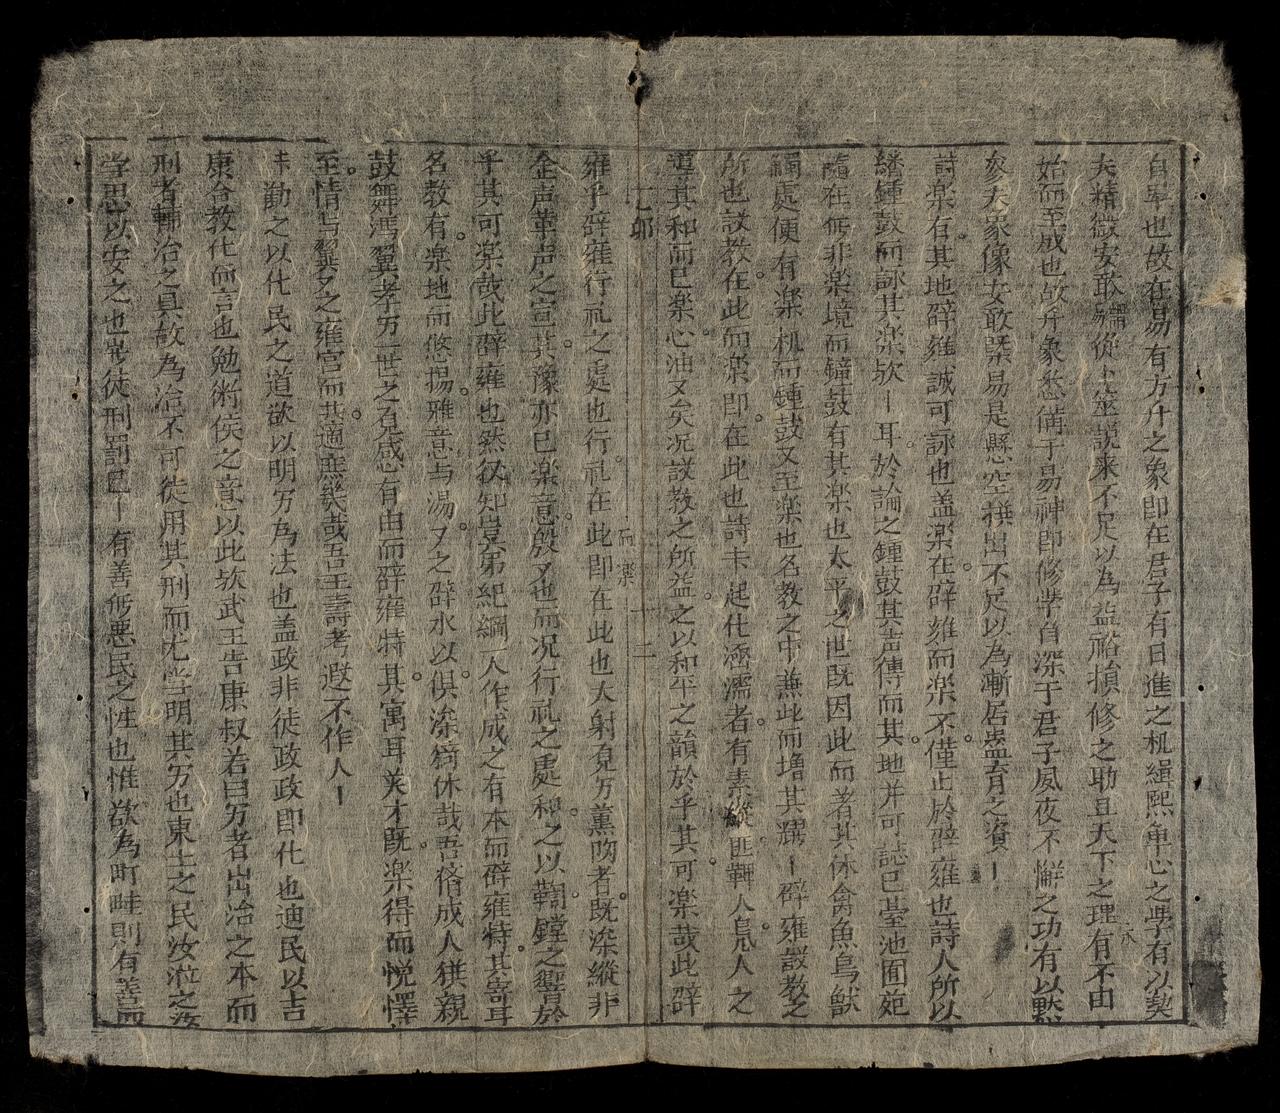 自卑也故在易有方升之象即在君子有日進之机緝熙单心之學有以契
夫精微安敢謂易從卜筮說来不足以為益裕損修之助且天下之理有不由
始而至成也故升象悉俻于易神即修學自深于君子夙夜不懈之功有以黙
爻夫象像安敢槩易是懸空撰出不足以為漸居盅育之資
詩楽有其地辟雍誠可詠也盖楽在辟雍而楽不僅止於辟雍也詩人所以
繙鍾鼓而詠其楽欤耳於論之鍾鼓其声傳而其地并可誌已臺池囿苑
隨在無非楽境而鍾鼓有其楽也太平之世既因此而著其休禽魚鳥獸
觸處便有楽机而鍾鼓又至楽也名教之中兼此而增其躍辟雍設教之
所也設教在此而楽即在此也詩卡起化涵濡者有素縱匪鞞人凫人之
導其和而已楽心油又矣况設教之所益之以和平之韻於乎其可楽哉此辟
二卯 十二
雍乎辟雍行礼之處也行礼在此而楽即在此也大射有万薫陶者既深縱非
金声革声之宣其豫亦已楽意殷又也而况行礼之處和之以鞫鏜之響於
乎其可楽哉此辟雍也然後知豈弟紀綱一人作成之有本而辟雍特其寄耳
名教有楽地而悠揚雅意与湯又之辟水以俱深猗休哉吾偺成人獉親
鼓舞鴻翼孝万一世之有感有由而辟雍特其寓耳美才既楽得而悅懌
至情与翼又之雍宫而其適庶矣哉吾王壽考遐不作人
卡勸之以化民之道欲以明万為法也盖政非徒政政即化也迪民以吉
康合教化而言也勉術侯之意以此欤武王告康叔若曰万者出治之本而
刑者輔治之具故為治不可徒用其刑而尤当明其万也東土之民汝涖之汝
当思以安之也岂徒刑罰已有善無悪民之性也惟欲為町畦則有善而